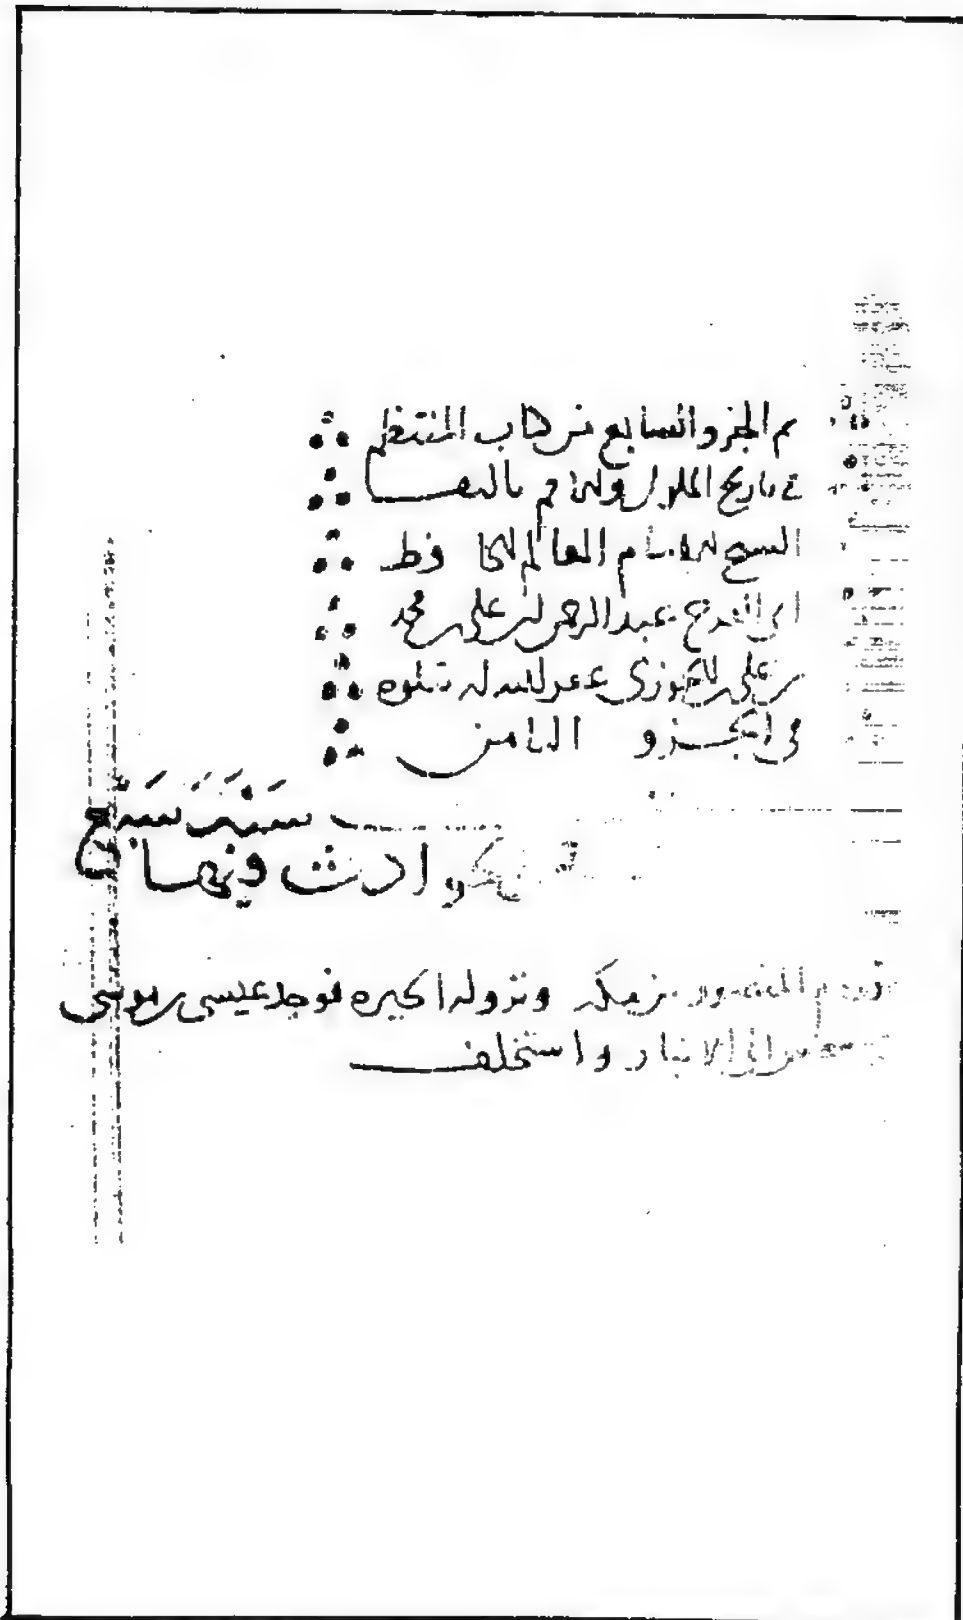 تم الجزو السابع من كتاب المنتظم
في تاريخ الملوك والامم تاليف
الشيخ الامام العالم الحافظ
ابي الفرج عبد الرحمن بن علي بن محمد
بن علي بن الجوزي غفر الله له يتلوه
في الجزو الثامن
سنة سبع
الحوادث فيها
المنصور من مكة ونزوله الحيرة فوجد عيسى بن موسى
الى الانبار واستخلف